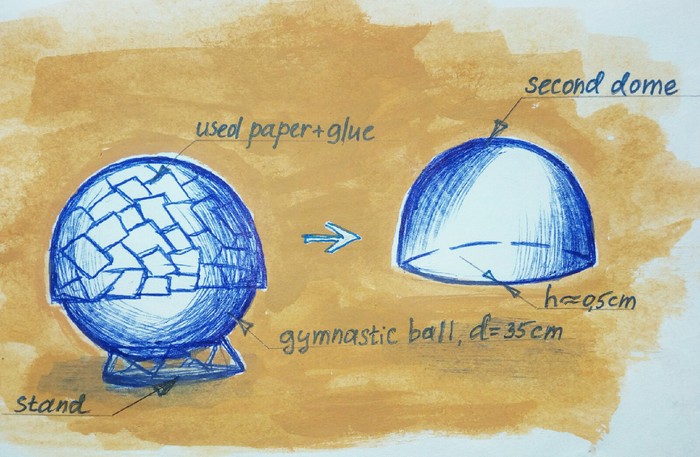 second dome
used paper+glue
h≈0,5cm
gymnastic ball, d=35cm
stand